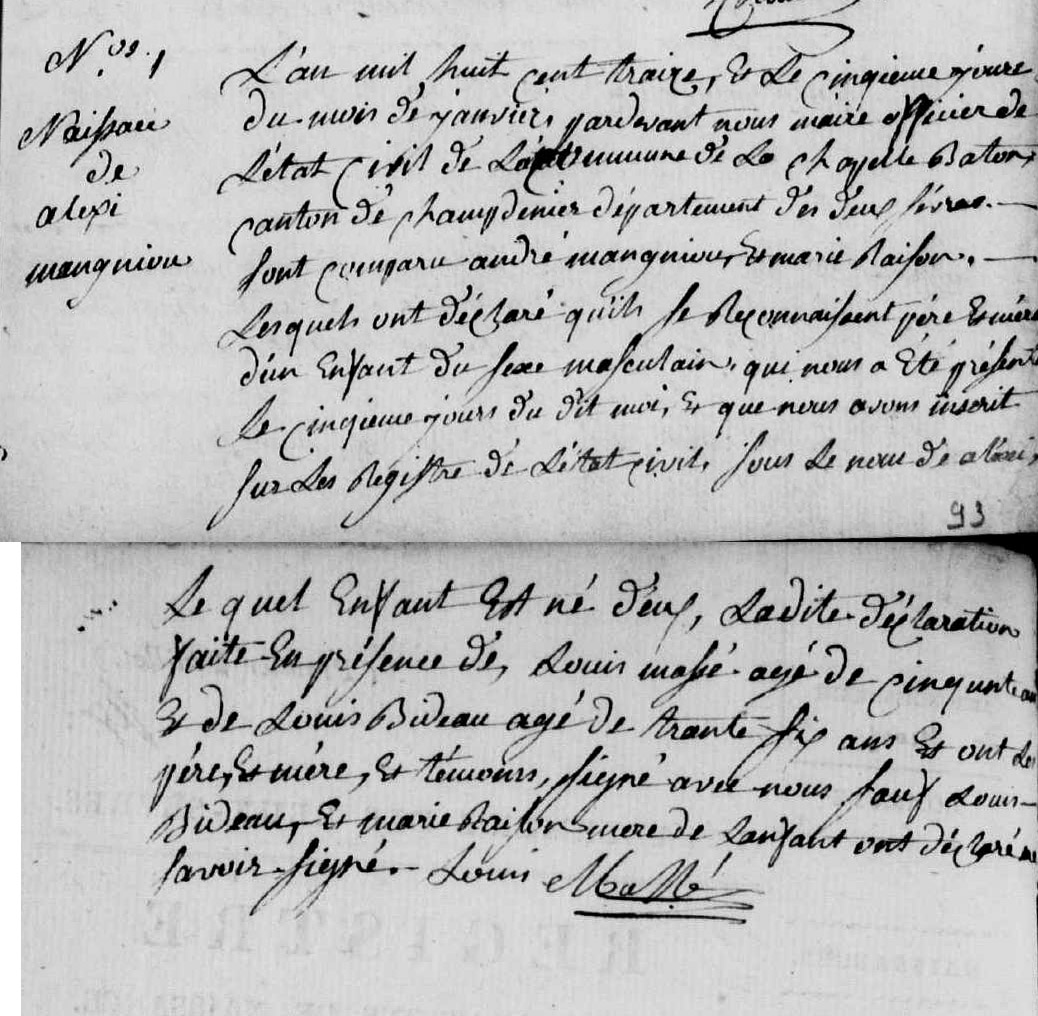 N.os 1
Naissance
de
alexi
mangniou
L'an mil huit cent traize, Et Le cinqieme joure
du mois de janvier, pardevant nous maire officier de
L'état Civil de La commune de La chapelle Baton,
canton de champdenier département des deux sévres.
sont comparu andré mangniou, Et marie Raison.
Lesquels ont déclaré qu'ils se Reconnaissent pére Et mére
d'un Enfant du sexe masculain, qui nous a Été présenté
Le cinqieme jours du dit moi, Et que nous avons inscrit
sur Les Registre de L'état civil, sous Le nom de alexi,
93
Le quel Enfant Est né d'eux, Ladite déclaration
faite En présence de, Louis massé agé de cinqunte ans
Et de Louis Bideau agé de trante six ans Et ont Les
pére, Et mére, Et témoins, signé avec nous sauf Louis
Bideau, Et marie Raison mere de Lanfant ont déclaré ne
savoir signé. Louis Massé